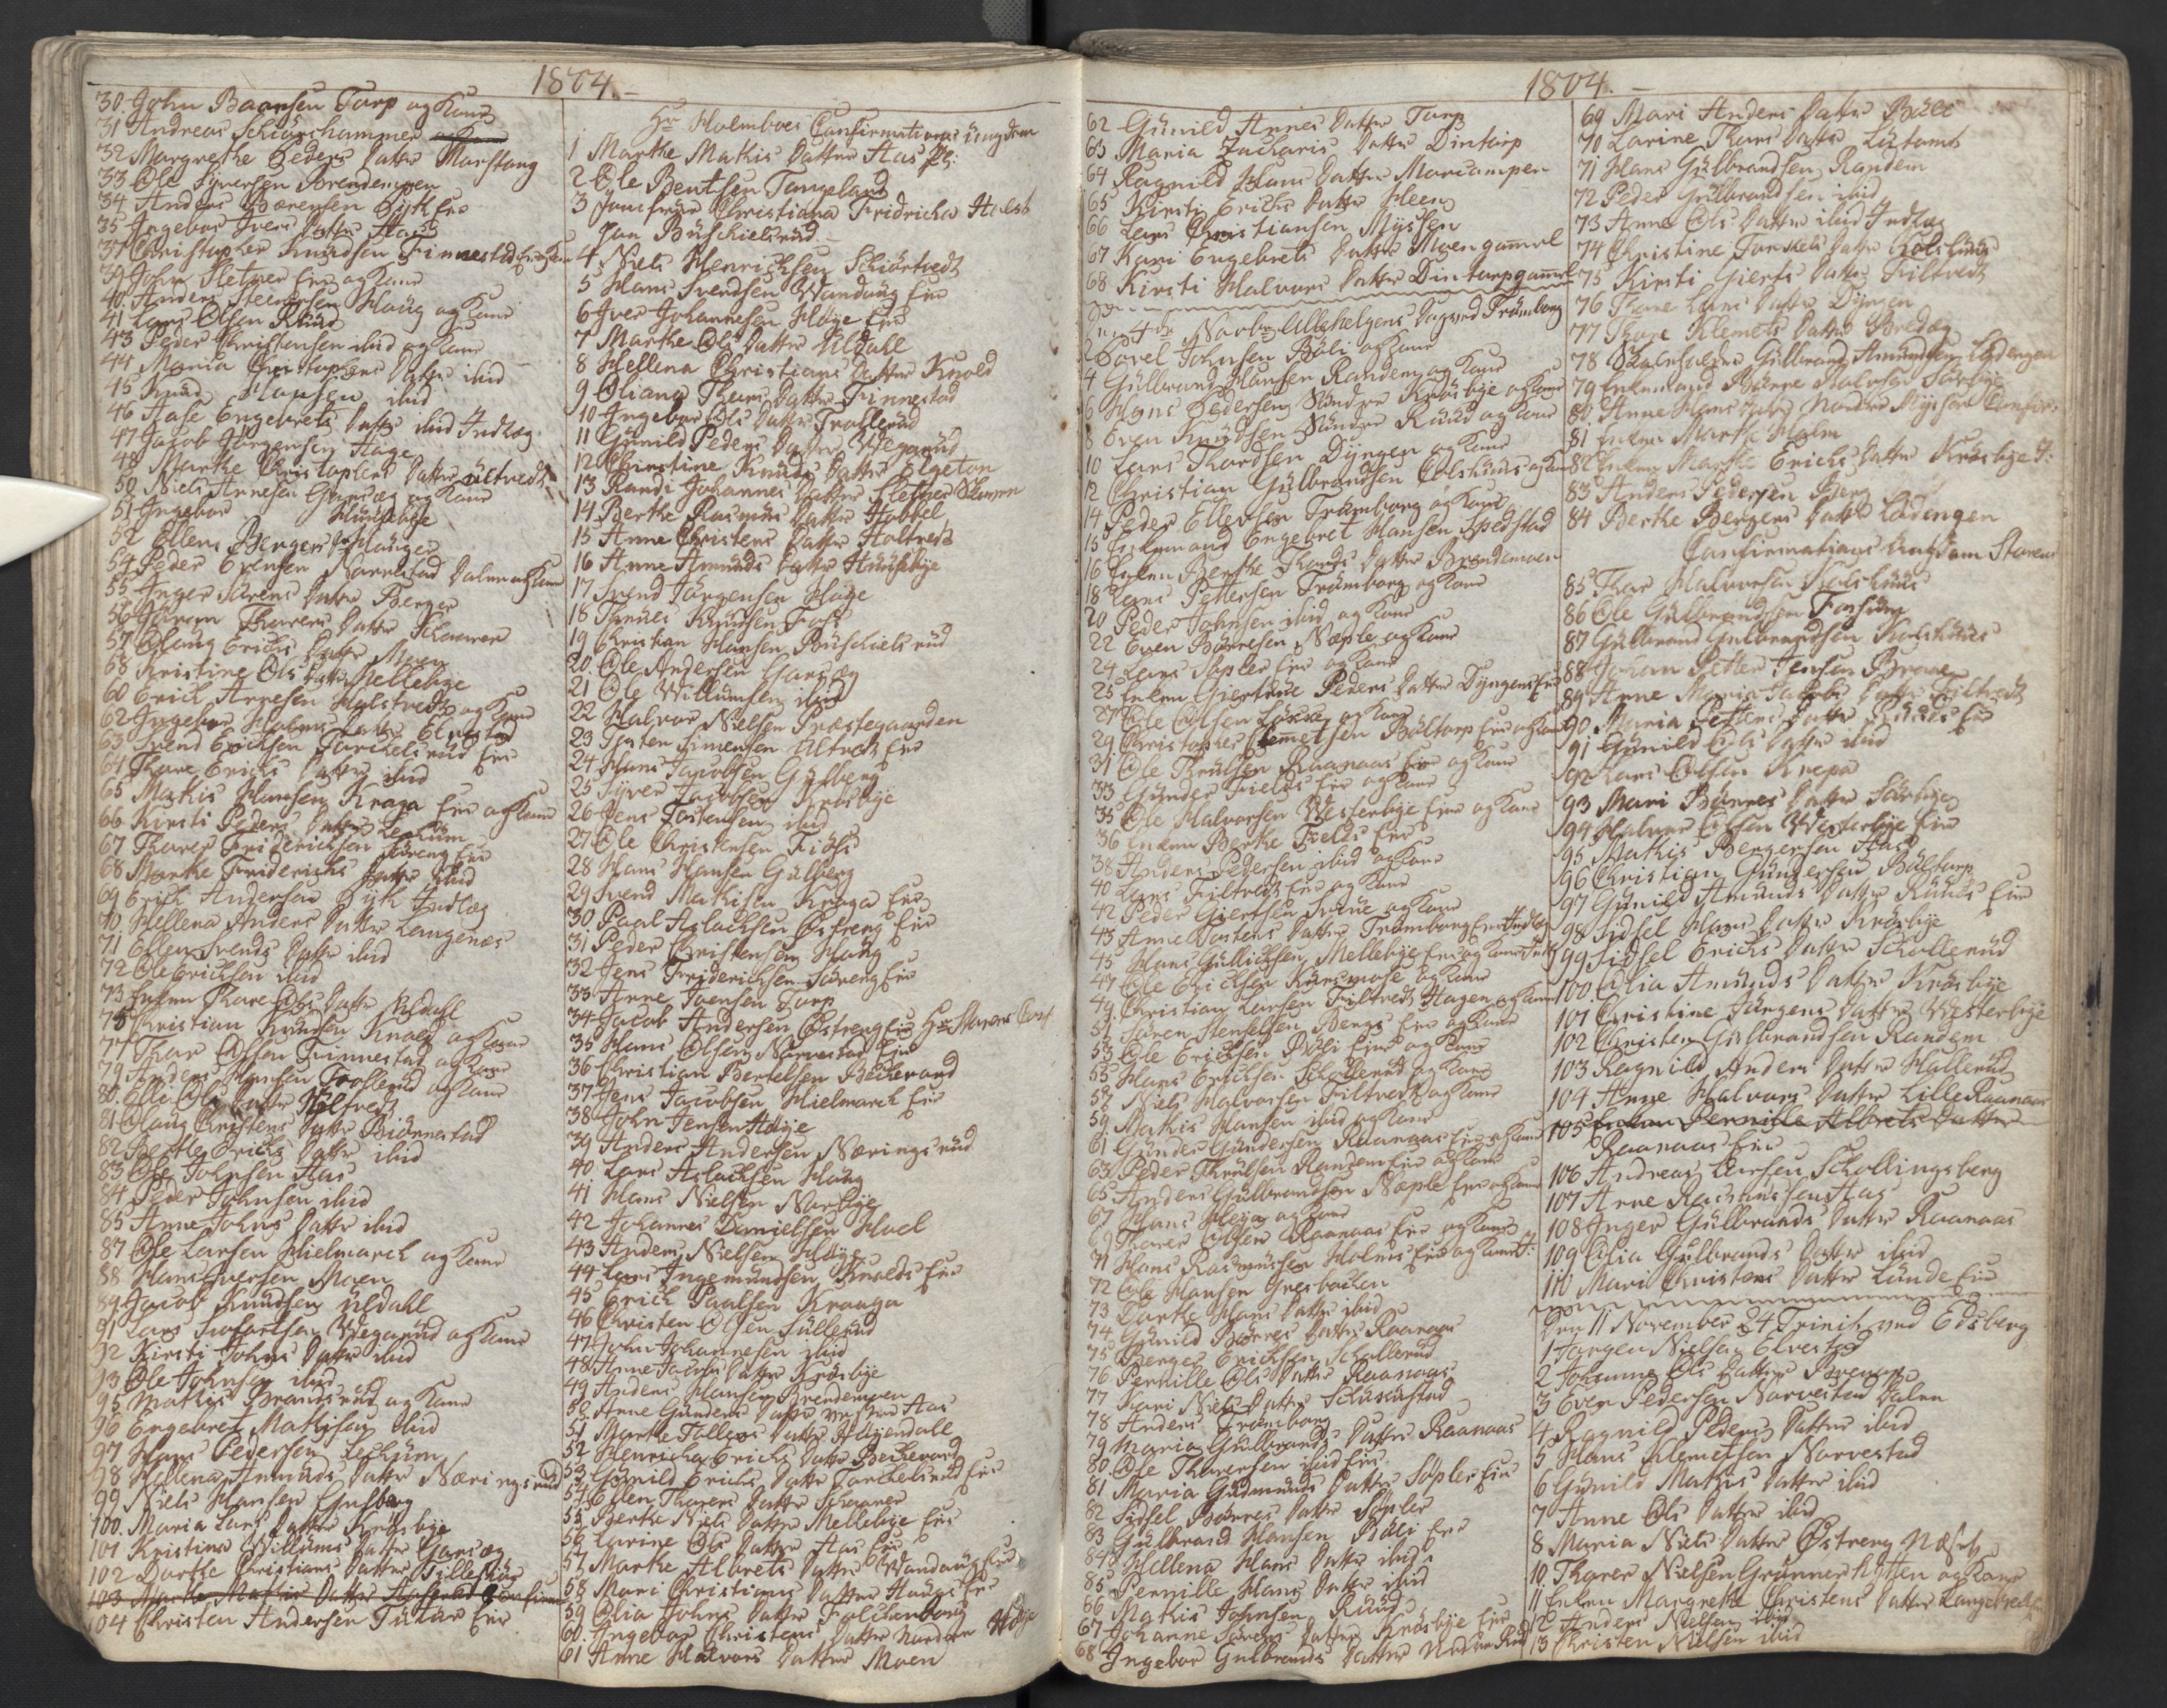 1804.
30. John Baansen Torp og Kone
31 Andreas Schiørshammer
32 Margrethe Peders Datter Morstang
33 Ole Syversen Brendemoen
34 Anders Sørensen Dyk Eie
35 Ingebor Ivers Datter
37 Christopher Knudsen Finnestad
39 John Sletner Eie og Kone
40 Anders Steenersen Haug og Kone
41 Lars Olsen Ruud
43 Peder Christensen ibid og Kone
44 Maria Christophers Datter ibid
45 Knud Hansen ibid
46 Aase Engebrets Datter ibid Indlæg
47 Jacob Jørgensen Hage
48 Marthe Christophers Datter Ultvedt
50 Niels Arnesen og Kone
51 Ingebor Huusebye
52 Ellen Bergers Datter
54 Peder Evensen Narvestad Dalen og Kone
55 Inger Sørens Datter Berger
56 Thorers Datter
57 Olaug Erichs Datter Moen
58 Kristine Ols Datter Mellebye
60 Erich Arnesen Holstvedt og Kone
62 Ingebor Datter Elvestad
63 Svend Erichsen Torkelsrud Eie
64 Thore Erichs Datter ibid
65 Mathis Hansen Kraga Eie og Kone
66 Kirsti Peders Datter Lekum
67 Thorer Friderichsen Eie
68 Marthe Friderichs Datter ibid
69 Erich Andersen Dyk Indlæg
70 Hellena Anders Datter Langenæs
71 Ellen Svends Datter ibid
72 Ole Erichsen ibid
73 Enken Thore Ols Datter Uldahl
75 Christian Knudsen Knold og Kone
77 Thor Olsen Finnestad og Kone
79 Anders Hansen Trollerud og Kone
80. Elli Ols Datter Ultvedt
81 Olaug Christens Datter Biørnestad
82 Berthe Erichs Datter ibid
83 Ole Johnsen Aas
84 Peder Johnsen ibid
85 Anne Johns Datter ibid
87 Ole Larsen Hielmarck og Kone
88 Hans Iversen Moen
89 Jacob Knudsen Uldahl
91 Lars Wegarud og Kone
92 Kirsti Johns Datter ibid
93 Ole Johnsen ibid
95 Mathis Brandsrud og Kone
96 Engebret Mathisen ibid
97 Hans Pedersen Leckum
98 Hellena Amunds Datter Næringsrud
99 Niels Hansen Gulberg
100. Maria Lars Datter Krosbye
101 Kristine Willums Datter
102 Dorthe Christians Datter
103 Marthe Mathis Datter
104 Christen Andersen Eie
Hr Holmboes Confirmations ungdom
1 Marthe Mathis Datter Aas Pl:
2 Ole Bentsen Tangeland
3 Jomfrue Christiana Fridricha Holst
Paa Buskielsrud
4 Niels Henrichsen Schiørtvedt
5 Hans Svendsen Wandung Eie
6 Iver Johannesen Høye Eie
7 Marthe Ols Datter Uldahl
8 Hellena Christians Datter Knold
9 Oliana Thors Datter Finnestad
10 Ingebor Ols Datter Trollerud
11 Gunild Peders Datter Wegarud
12 Christine Knuds Datter Elgeton
13 Randi Johannes Datter Sletner
14 Berthe Rasmus Datter Hobbel
15 Anne Christens Datter Holtvedt
16 Anne Amunds Datter Huusebye
17 Svend Jørgensen Hage
18 Thrues Knudsen Foss
19 Christian Hansen Buskielsrud
20. Ole Andersen
21 Ole Willumsen ibid
22 Halvor Nielsen Præstegaarden
23 Tosten Simensen Ultvedt Eie
24 Hans Jacobsen Gulberg
25 Syver Jacobsen Krosbye
26 Jens Tostensen ibid
27 Ole Christensen Fiøss
28 Hans Hansen Gulberg
29 Svend Mathisen Kraga Eie
30. Paal Aslachsen Østreng Eie
31 Peder Christensen Haug
32 Jens Friderichsen Eie
33 Anne Joensen Torp
34 Jacob Andersen Østreng Eie
35 Hans Olsen Narvestad Eie
36 Christian Bertelsen Beckevard
37 Jens Jacobsen Hielmarck Eie
38 John Jensen Høye
39 Anders Andersen Næringsrud
40 Lars Aslachsen Haug
41 Hans Nielsen Narebye
42 Johannes Danielsen Hoel
43 Anders Nielsen Høye
44 Lars Ingemundsen Knolds Eie
45 Erich Paalsen Kraaga
46 Christen Olsen Sullerud
47 John Johannesen ibid
48 Anne Jacobs Datter Krosbye
49 Anders Hansen Brendemoen
50. Anne Gunders Datter Aas
51 Marthe Tollefs Datter
52 Henricha Erichs Datter Beckevard
53 Gunild Erichs Datter Torkelsrud Eie
54 Ellen Thorers Datter
55 Berthe Niels Datter Mellebye Eie
56 Karine Ols Datter Aas Eie
57 Marthe Albrets Datter Wandung Eie
58 Mari Christians Datter Haugs Eie
59 Olia Johns Datter Falchenborg
60. Ingebor Christens Datter Nordre Høye
61 Anne Halvors Datter Moen
1804.
62 Gunild Annes Datter Torp
63 Maria Zacharis Datter Dintorp
64 Ragnild Hans Datter Morcampen
65 Kirsti Erichs Datter Heen
66 Lars Christiansen Myssen
67 Kari Engebrets Datter Moengammel
68 Kirsti Halvors Datter Dintorpgammel
Den 4de Novbr Allehelgens Dag ved Trømborg
2 Povel Johnsen Bøli og Kone
4 Gulbrand Hansen Randem og Kone
6 Hans Pedersen Søndre Krosbye og Kone
8 Even Knudsen Søndre Ruud og Kone
10 Lars Thordsen Dyngen og Kone
12 Christian Gulbrandsen Colshuus og Kone
14 Peder Ellevsen Trømborg og Kone
15 Enkemand Engebret Hansen Hedstad
16 Enken Berthe Thords Datter Brendemoen
18 Lars Pettersen Trømborg og Kone
20 Peder Johnsen ibid og Kone
22 Even Børresen Næple og Kone
24 Lars Søpler Eie og Kone
25 Enken Giertrue Peders Datter Dyngens Eie
27 Ole Olsen og Kone
29 Christopher Clemetsen Bøltorp Eie og Kone
31 Ole Thrulsen Raanaas Eie og Kone
33 Gunder Fields Eie og Kone
35 Ole Halvorsen Westerbye Eie og Kone
36 Enken Berthe Fields Eie
38 Anders Pedersen ibid og Kone
40 Lars Filtvedt Eie og Kone
42 Peder Giertsen og Kone
43 Anne Tostens Datter Trømborg Eie Indlæg
45 Hans Gullichsen Mellebye Eie og Kone
47 Ole Erichsen og Kone
49 Christian Larsen Filtvedt Hagen og Kone
51 Søren Stensesen Bergs Eie og Kone
53 Ole Erichsen Bøli Eie og Kone
55 Hans Erichsen Schollerud og Kone
57 Niels Halvorsen Filtvedt og Kone
59 Mathis Hansen ibid og Kone
61 Gunder Gundersen Raanaas Eie og Kone
63 Peder Thrulsen Randem Eie og Kone
65 Anders Gulbrandsen Næple Eie og Kone
67 Hans og Kone
69 Thorer Olsen Raanaas Eie og Kone
71 Hans Rasmussen Holms Eie og Kone
72 Ole Hansen Gresbacken
73 Dorthe Hans Datter ibid
74 Gunild Børres Datter Raanaas
75 Berger Erichsen Schollerud
76 Pernille Ols Datter Raanaas
77 Kari Niels Datter
78 Anders Trømborg
79 Maria Gulbrands Datter Raanaas
80. Ole Thorersen ibid Eie
81 Maria Gudmunds Datter Søpler Eie
82 Sidsel Børres Datter Søpler
83 Gulbrand Hansen Bøli Eie
84 Hellena Hans Datter ibid
85 Pernille Hans Datter ibid
86 Mathis Johnsen Ruud
67 Johanne Sørens Datter Krosbye Eie
68 Ingebor Gulbrands Datter Nordre Rud
69 Mari Anders Datter Bøle
70 Karine Thors Datter
71 Hans Gulbrandsen Randem
72 Peder Gulbrandsen ibid
73 Anne Ols Datter ibid Indlæg
74 Christine Torckels Datter Colshuus
75 Kirsti Gierts Datter Filtvedt
76 Thore Lars Datter Dyngen
77 Thore Klemets Datter
78 Gulbrand Amundsen Ladengen
79 Enkemand Børre Halvorsen Sørbye
80. Anne Hans Datter Nordre Myssen
81 Enken Marthe Holm
82 Enken Marthe Erichs Datter Krosbye
83 Anders Pedersen Berg
84 Berthe Bergers Datter Ladengen
Confirmations Ungdom
85 Thor Halvorsen Kolshuus
86 Ole Gulbrandsen Fossum
87 Gulbrand Gulbrandsen Kolshuus
88 Johan Petter Jensen
89 Anne Maria Jacobs Datter Filtvedt
90. Maria Petters Datter Eie
91 Gunild Ols Datter ibid
92 Lars Olsen Knepa
93 Mari Børres Datter Sørbye
94 Halvor Olsen Westerbye Eie
95 Mathis Bergersen Aas
96 Christian Gundersen Bøltorp
97 Gunild Amunds Datter Ruuds Eie
98 Sidsel Hans Datter Krosbye
99 Sidsel Erichs Datter Schollerud
100. Olia Amunds Datter Krosbye
101 Christine Jørgens Datter Westerbye
102 Christen Gulbrandsen Randem
103 Ragnild Anders Datter Hallerud
104 Anne Halvors Datter Lille Raanaas
105 Enken Pernille Albrets Datter
Raanaas Eie
106 Andreas Larsen Schollingsberg
107 Arne Rasmussen Aas
108 Inger Gulbrands Datter Raanaas
109 Olia Gulbrands Datter ibid
110 Mari Christens Datter Lunde Eie
Den 11 November 24 Trinit: ved Edsberg
1 Jørgen Nielsen Elvestad
2 Johanne Ols Datter
3 Even Pedersen Narvestad Dalen
4 Ragnild Peders Datter ibid
5 Hans Klemetsen Narvestad
6 Gunild Mathis Datter ibid
7 Anne Ols Datter ibid
8 Maria Niels Datter Østreng
10. Thorer Nielsen Grønnerhytten og Kone
11 Enken Margrethe Christens Datter
12 Anders Nielsen ibid
13 Christen Nielsen ibid